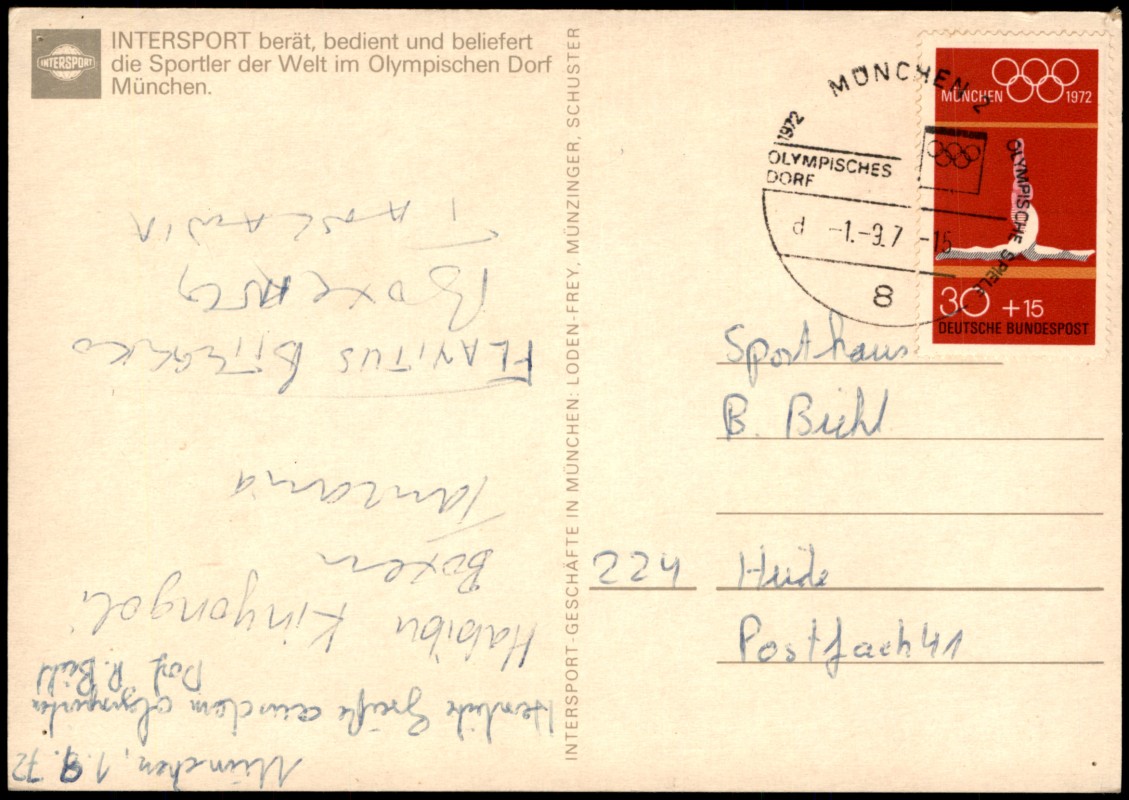 INTERSPORT
INTERSPORT berät, bedient und beliefert
die Sportler der Welt im Olympischen Dorf
München.
INTERSPORT-GESCHÄFTE IN MÜNCHEN: LODEN-FREY, MÜNZINGER, SCHUSTER
MÜNCHEN 2
1972
OLYMPISCHES
DORF
OLYMPISCHE SPIELE
d -1.-9.7 -15
8
MÜNCHEN 1972
30 +15
DEUTSCHE BUNDESPOST
Sporthaus
B. Biehl
224 Heide
Postfach 41
München, 1.9.72
Herzliche Grüße aus dem
R. Biehl
Habibu Kinyogoli
Boxen
Tanzania
BOXING